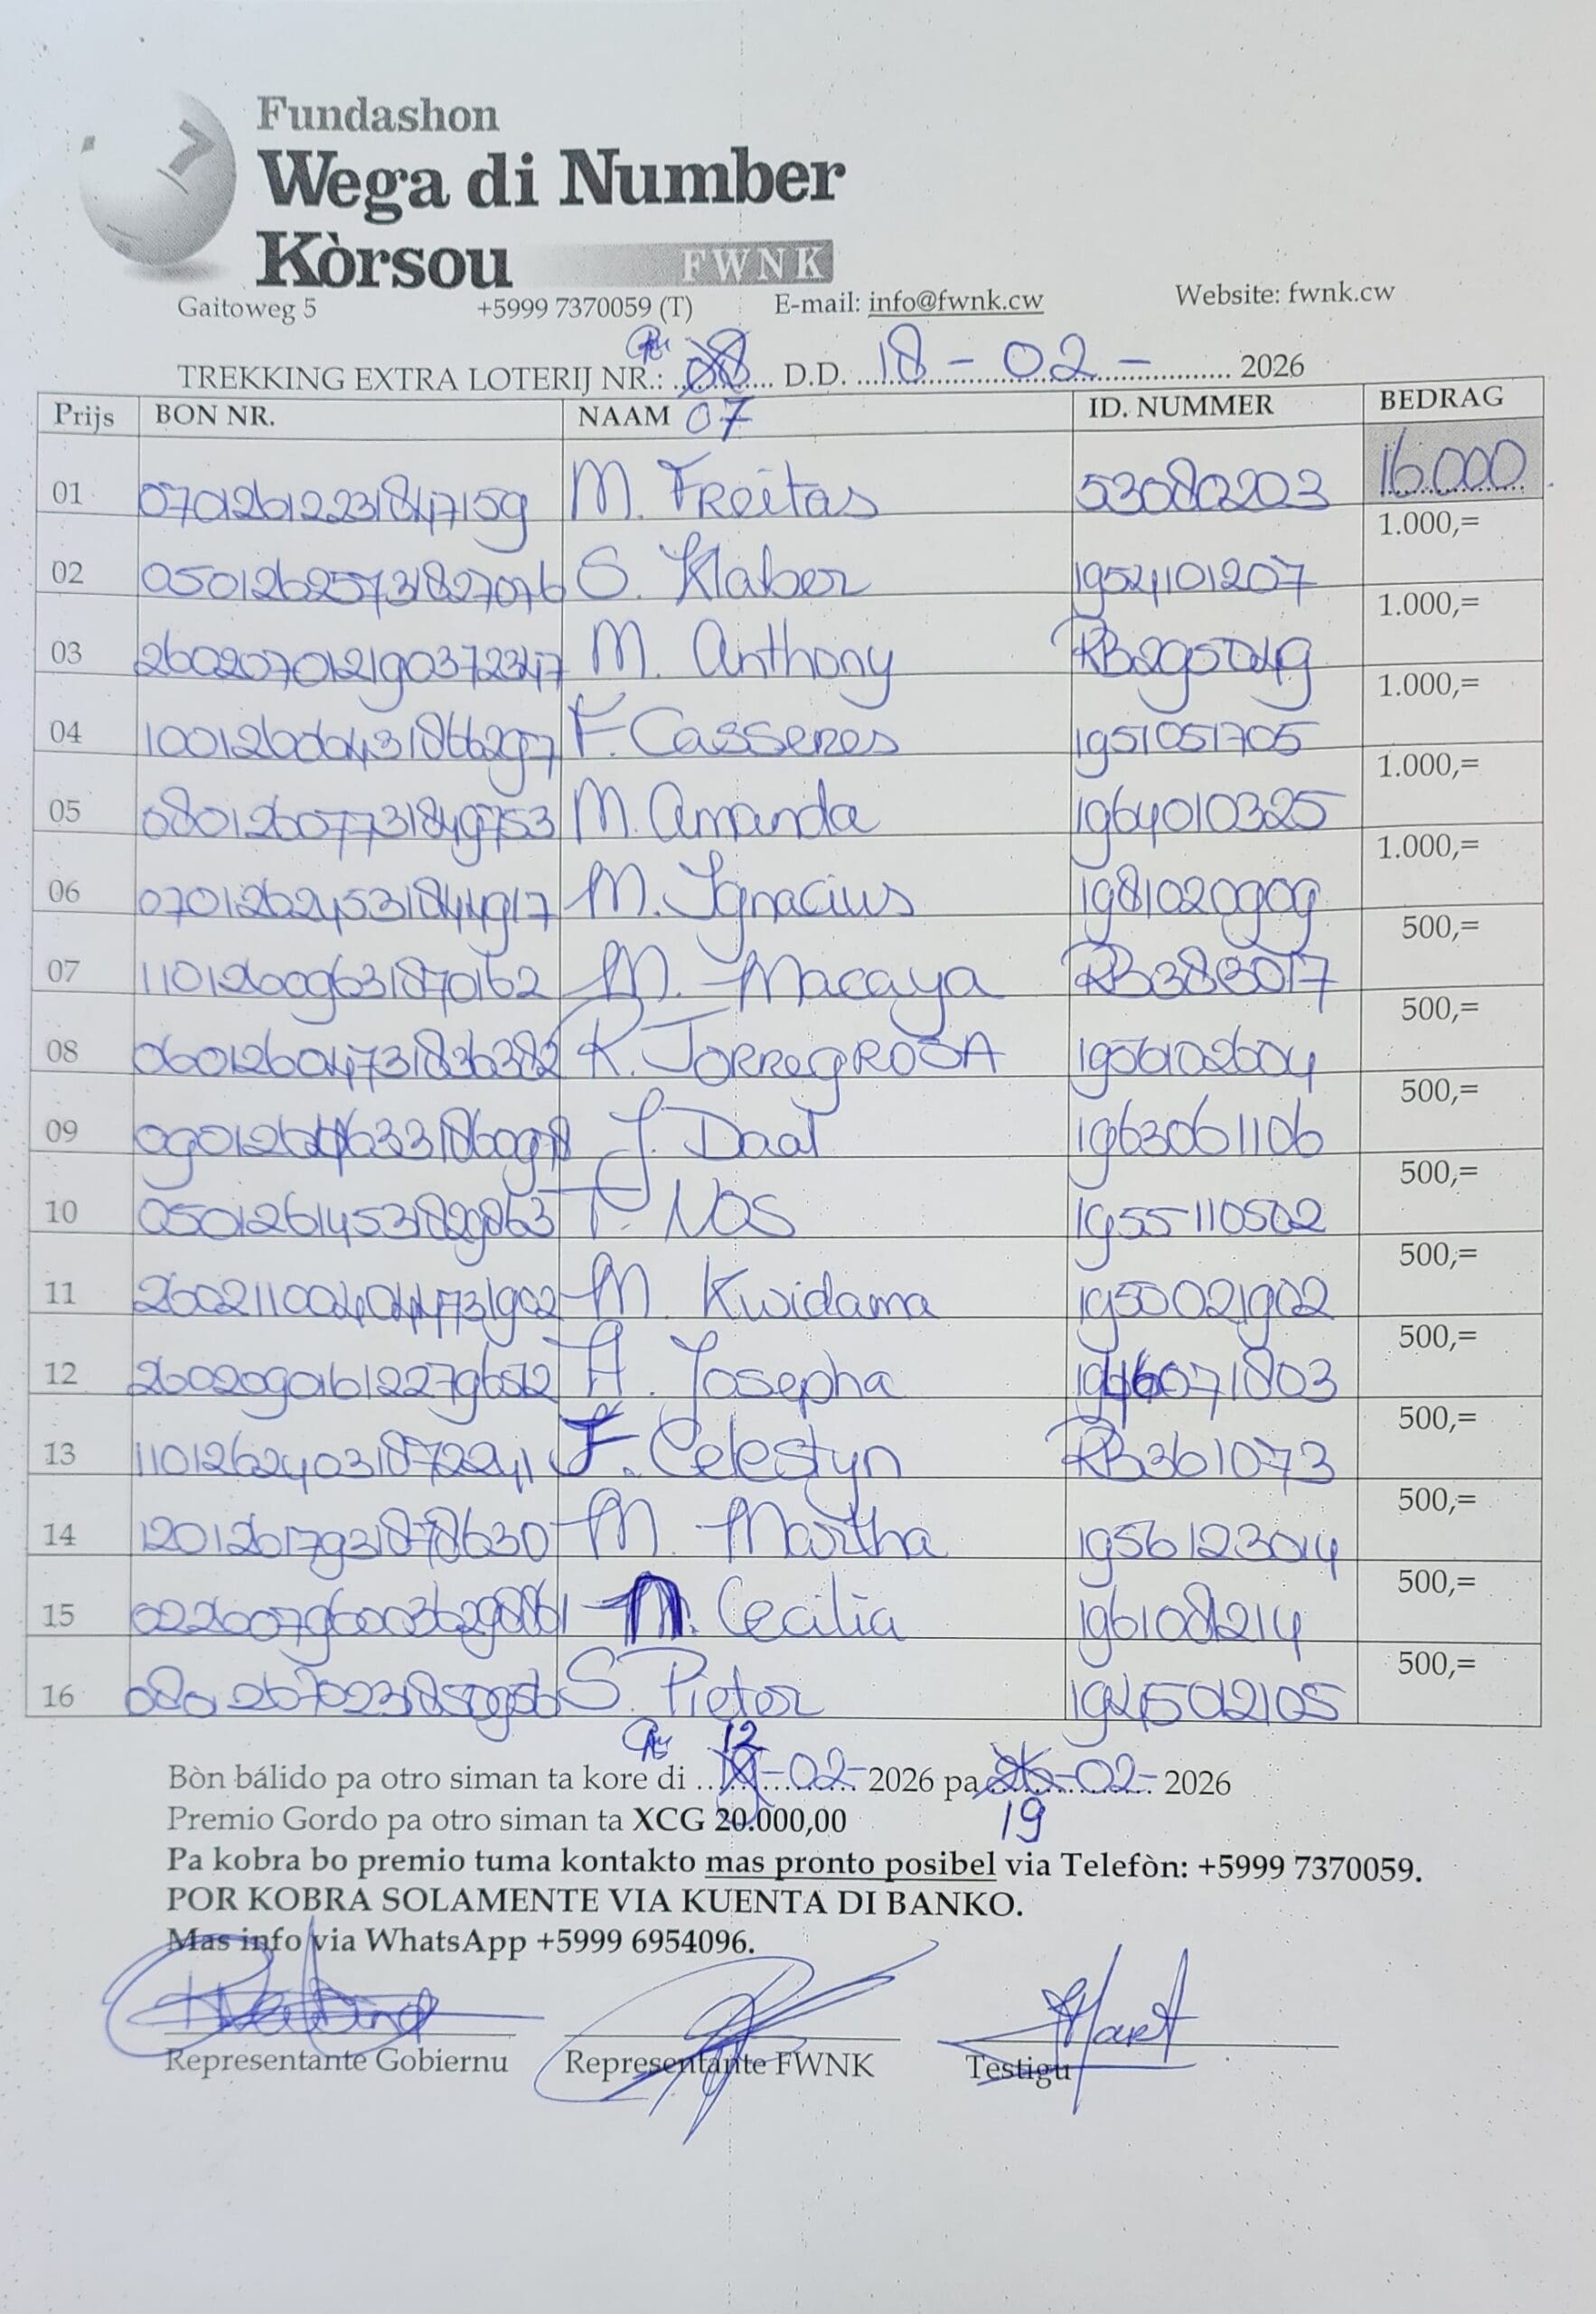 Fundashon
Wega di Number
Kòrsou
FWNK
Gaitoweg 5 +5999 7370059 (T) E-mail: info@fwnk.cw Website: fwnk.cw
TREKKING EXTRA LOTERIJ NR.: 08 D.D. 18-02- 2026
07
Prijs BON NR. NAAM ID. NUMMER BEDRAG
01 07012612231847159 M. Freitas 53080203 16.000
02 05012625731827076 S. Klaber 1954101207 1.000,=
03 260207012190372347 M. Anthony RB295049 1.000,=
04 F. Casseres 1951051705 1.000,=
05 08012607731849753 M. Amanda 1964010325 1.000,=
06 07012624531844917 M. Ignacius 1981020909 1.000,=
07 110126009631870162 M. Macaya RB383017 500,=
08 06012604731836382 K. TORREGROSA 1956102604 500,=
09 J. Daal 1963061106 500,=
10 05012614531829863 F. NOS 1955110502 500,=
11 M Kwidama 1950021902 500,=
12 A. Josepha 1946071803 500,=
13 11012624031872241 F. Celestyn RB361073 500,=
14 12012617931878630 M. Martha 1956123014 500,=
15 M. Cecilia 1961081214 500,=
16 S. Pieter 1945012105 500,=
12
Bòn bálido pa otro siman ta kore di 19-02-2026 pa 26-02-2026
Premio Gordo pa otro siman ta XCG 20.000,00 19
Pa kobra bo premio tuma kontakto mas pronto posibel via Telefòn: +5999 7370059.
POR KOBRA SOLAMENTE VIA KUENTA DI BANKO.
Mas info via WhatsApp +5999 6954096.
Representante Gobiernu Representante FWNK Testigu